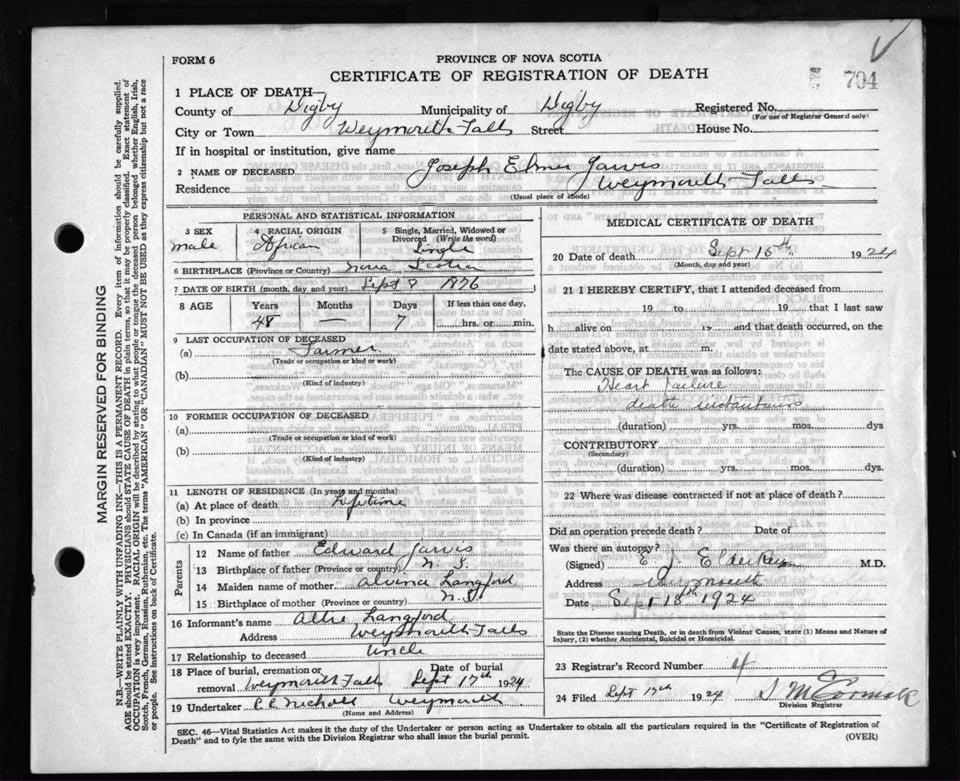 FORM 6
PROVINCE OF NOVA SCOTIA
CERTIFICATE OF REGISTRATION OF DEATH
704
1 PLACE OF DEATH—
County of Digby Municipality of Digby Registered No.
(For use of Registrar General only)
City or Town Weymouth Falls Street House No.
If in hospital or institution, give name
2 NAME OF DECEASED Joseph Elmer Jarvis
Residence Weymouth Falls
(Usual place of abode)
PERSONAL AND STATISTICAL INFORMATION
3 SEX 4 RACIAL ORIGIN 5 Single, Married, Widowed or Divorced (Write the word)
male African Single
6 BIRTHPLACE (Province or Country) Nova Scotia
7 DATE OF BIRTH (month, day and year) Sept 8 1876
8 AGE Years Months Days If less than one day,
48 — 7 hrs. or min.
9 LAST OCCUPATION OF DECEASED
(a) Farmer
(Trade or occupation or kind or work)
(b)
(Kind of industry)
10 FORMER OCCUPATION OF DECEASED
(a)
(Trade or occupation or kind of work)
(b)
(Kind of industry)
11 LENGTH OF RESIDENCE (In years and months)
(a) At place of death Lifetime
(b) In province
(c) In Canada (if an immigrant)
Parents
12 Name of father Edward Jarvis
13 Birthplace of father (Province or country) N. S.
14 Maiden name of mother Alvina Langford
15 Birthplace of mother (Province or country) N.S.
16 Informant's name Langford
Address Weymouth Falls
17 Relationship to deceased Uncle
18 Place of burial, cremation or Date of burial
removal Weymouth Falls Sept 17th 1924
19 Undertaker Weymouth
(Name and Address)
MEDICAL CERTIFICATE OF DEATH
20 Date of death Sept 15th 1924
(Month, day and year)
21 I HEREBY CERTIFY, that I attended deceased from
19 to 19 that I last saw
h alive on 19 and that death occurred, on
date stated above, at m.
The CAUSE OF DEATH was as follows:
Heart failure
death instantaneous
(duration) yrs. mos. dys
CONTRIBUTORY
(Secondary)
(duration) yrs. mos. dys.
22 Where was disease contracted if not at place of death?
Did an operation precede death? Date of
Was there an autopsy?
(Signed) E. J. Elderkin M.D.
Address Weymouth
Date Sept 18th 1924
State the Disease causing Death, or in death from Violent Causes, state (1) Means and Nature of
Injury, (2) whether Accidental, Suicidal or Homicidal.
23 Registrar's Record Number
24 Filed Sept 17th 1924 McCormack
Division Registrar
SEC. 46—Vital Statistics Act makes it the duty of the Undertaker or person acting as Undertaker to obtain all the particulars required in the "Certificate of Registration of
Death" and to fyle the same with the Division Registrar who shall issue the burial permit.
(OVER)
MARGIN RESERVED FOR BINDING
N.B.—WRITE PLAINLY WITH UNFADING INK—THIS IS A PERMANENT RECORD. Every item of information should be carefully supplied.
AGE should be stated EXACTLY. PHYSICIANS should STATE CAUSE OF DEATH in plain terms, so that it may be properly classified. Exact statement of
OCCUPATION is very important. RACIAL ORIGIN will be described by stating to what people or tongue the deceased person belonged whether English, Irish,
Scotch, French, German, Russian, Ruthenian, etc. The terms "AMERICAN" OR "CANADIAN" MUST NOT BE USED as they express citizenship but not a race
or people. See instructions on back of Certificate.